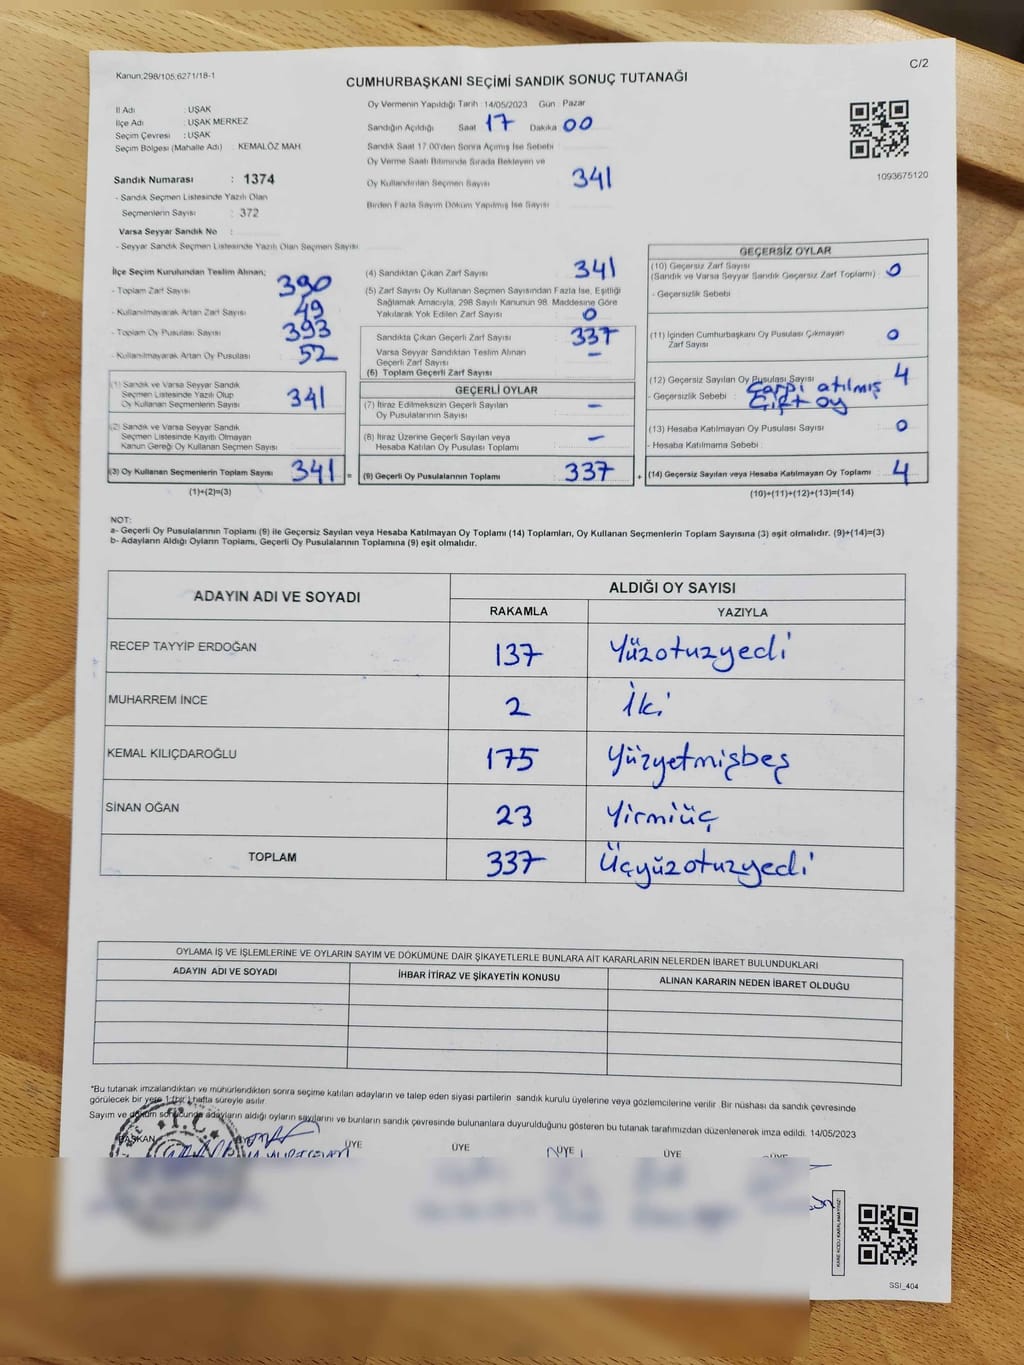 Kanun;298/105,6271/18-1
C/2
CUMHURBAŞKANI SEÇİMİ SANDIK SONUÇ TUTANAĞI
İl Adı : UŞAK
İlçe Adı : UŞAK MERKEZ
Seçim Çevresi : UŞAK
Seçim Bölgesi (Mahalle Adı) : KEMALÖZ MAH
Sandık Numarası : 1374
- Sandık Seçmen Listesinde Yazılı Olan
Seçmenlerin Sayısı : 372
Varsa Seyyar Sandık No :
- Seyyar Sandık Seçmen Listesinde Yazılı Olan Seçmen Sayısı
Oy Vermenin Yapıldığı Tarih 14/05/2023 Gün Pazar
Sandığın Açıldığı Saat 17 Dakika 00
Sandık Saat 17.00'den Sonra Açılmış İse Sebebi
Oy Verme Saati Bitiminde Sırada Bekleyen ve
Oy Kullandırılan Seçmen Sayısı 341
Birden Fazla Sayım Döküm Yapılmış İse Sayısı
1093675120
İlçe Seçim Kurulundan Teslim Alınan;
- Toplam Zarf Sayısı 390
- Kullanılmayarak Artan Zarf Sayısı 49
- Toplam Oy Pusulası Sayısı 393
- Kullanılmayarak Artan Oy Pusulası 52
(1) Sandık ve Varsa Seyyar Sandık
Seçmen Listesinde Yazılı Olup
Oy Kullanan Seçmenlerin Sayısı 341
(2) Sandık ve Varsa Seyyar Sandık
Seçmen Listesinde Kayıtlı Olmayan
Kanun Gereği Oy Kullanan Seçmen Sayısı
(3) Oy Kullanan Seçmenlerin Toplam Sayısı 341 =
(1)+(2)=(3)
(4) Sandıktan Çıkan Zarf Sayısı 341
(5) Zarf Sayısı Oy Kullanan Seçmen Sayısından Fazla İse, Eşitliği
Sağlamak Amacıyla, 298 Sayılı Kanunun 98. Maddesine Göre
Yakılarak Yok Edilen Zarf Sayısı 0
Sandıkta Çıkan Geçerli Zarf Sayısı 337
Varsa Seyyar Sandıktan Teslim Alınan
Geçerli Zarf Sayısı –
(6) Toplam Geçerli Zarf Sayısı
GEÇERLİ OYLAR
(7) İtiraz Edilmeksizin Geçerli Sayılan
Oy Pusulalarının Sayısı –
(8) İtiraz Üzerine Geçerli Sayılan veya
Hesaba Katılan Oy Pusulaları Toplamı –
(9) Geçerli Oy Pusulalarının Toplamı 337 +
GEÇERSİZ OYLAR
(10) Geçersiz Zarf Sayısı
(Sandık ve Varsa Seyyar Sandık Geçersiz Zarf Toplamı) 0
- Geçersizlik Sebebi
(11) İçinden Cumhurbaşkanı Oy Pusulası Çıkmayan
Zarf Sayısı 0
(12) Geçersiz Sayılan Oy Pusulası Sayısı 4
- Geçersizlik Sebebi : Çarpı atılmış
Çift oy
(13) Hesaba Katılmayan Oy Pusulası Sayısı 0
- Hesaba Katılmama Sebebi
(14) Geçersiz Sayılan veya Hesaba Katılmayan Oy Toplamı 4
(10)+(11)+(12)+(13)=(14)
NOT:
a- Geçerli Oy Pusulalarının Toplamı (9) ile Geçersiz Sayılan veya Hesaba Katılmayan Oy Toplamı (14) Toplamları, Oy Kullanan Seçmenlerin Toplam Sayısına (3) eşit olmalıdır. (9)+(14)=(3)
b- Adayların Aldığı Oyların Toplamı, Geçerli Oy Pusulalarının Toplamına (9) eşit olmalıdır.
ADAYIN ADI VE SOYADI
ALDIĞI OY SAYISI
RAKAMLA YAZIYLA
RECEP TAYYİP ERDOĞAN 137 Yüzotuzyedi
MUHARREM İNCE 2 İki
KEMAL KILIÇDAROĞLU 175 Yüzyetmişbeş
SİNAN OĞAN 23 Yirmiüç
TOPLAM 337 Üçyüzotuzyedi
OYLAMA İŞ VE İŞLEMLERİNE VE OYLARIN SAYIM VE DÖKÜMÜNE DAİR ŞİKAYETLERLE BUNLARA AİT KARARLARIN NELERDEN İBARET BULUNDUKLARI
ADAYIN ADI VE SOYADI İHBAR İTİRAZ VE ŞİKAYETİN KONUSU ALINAN KARARIN NEDEN İBARET OLDUĞU
*Bu tutanak imzalandıktan ve mühürlendikten sonra seçime katılan adayların ve talep eden siyasi partilerin sandık kurulu üyelerine veya gözlemcilerine verilir. Bir nüshası da sandık çevresinde
görülecek bir yere 1 (bir) hafta süreyle asılır.
Sayım ve döküm sonucunda adayların aldığı oyların sayılarını ve bunların sandık çevresinde bulunanlara duyurulduğunu gösteren bu tutanak tarafımızdan düzenlenerek imza edildi. 14/05/2023
BAŞKAN ÜYE ÜYE ÜYE ÜYE ÜYE
T.C.
KARE KODU KARALAMAYINIZ!
SSI_404